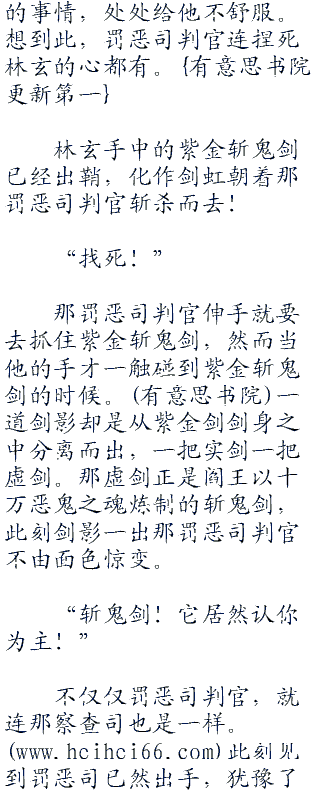 的事情，处处给他不舒服。
想到此，罚恶司判官连捏死
林玄的心都有。{有意思书院
更新第一}
林玄手中的紫金斩鬼剑
已经出鞘，化作剑虹朝着那
罚恶司判官斩杀而去！
“找死！”
那罚恶司判官伸手就要
去抓住紫金斩鬼剑，然而当
他的手才一触碰到紫金斩鬼
剑的时候。(有意思书院)一
道剑影却是从紫金剑剑身之
中分离而出，一把实剑一把
虚剑。那虚剑正是阎王以十
万恶鬼之魂炼制的斩鬼剑，
此刻剑影一出那罚恶司判官
不由面色惊变。
“斩鬼剑！它居然认你
为主！”
不仅仅罚恶司判官，就
连那察查司也是一样。
(www.hcihci66.com)此刻见
到罚恶司已然出手，犹豫了